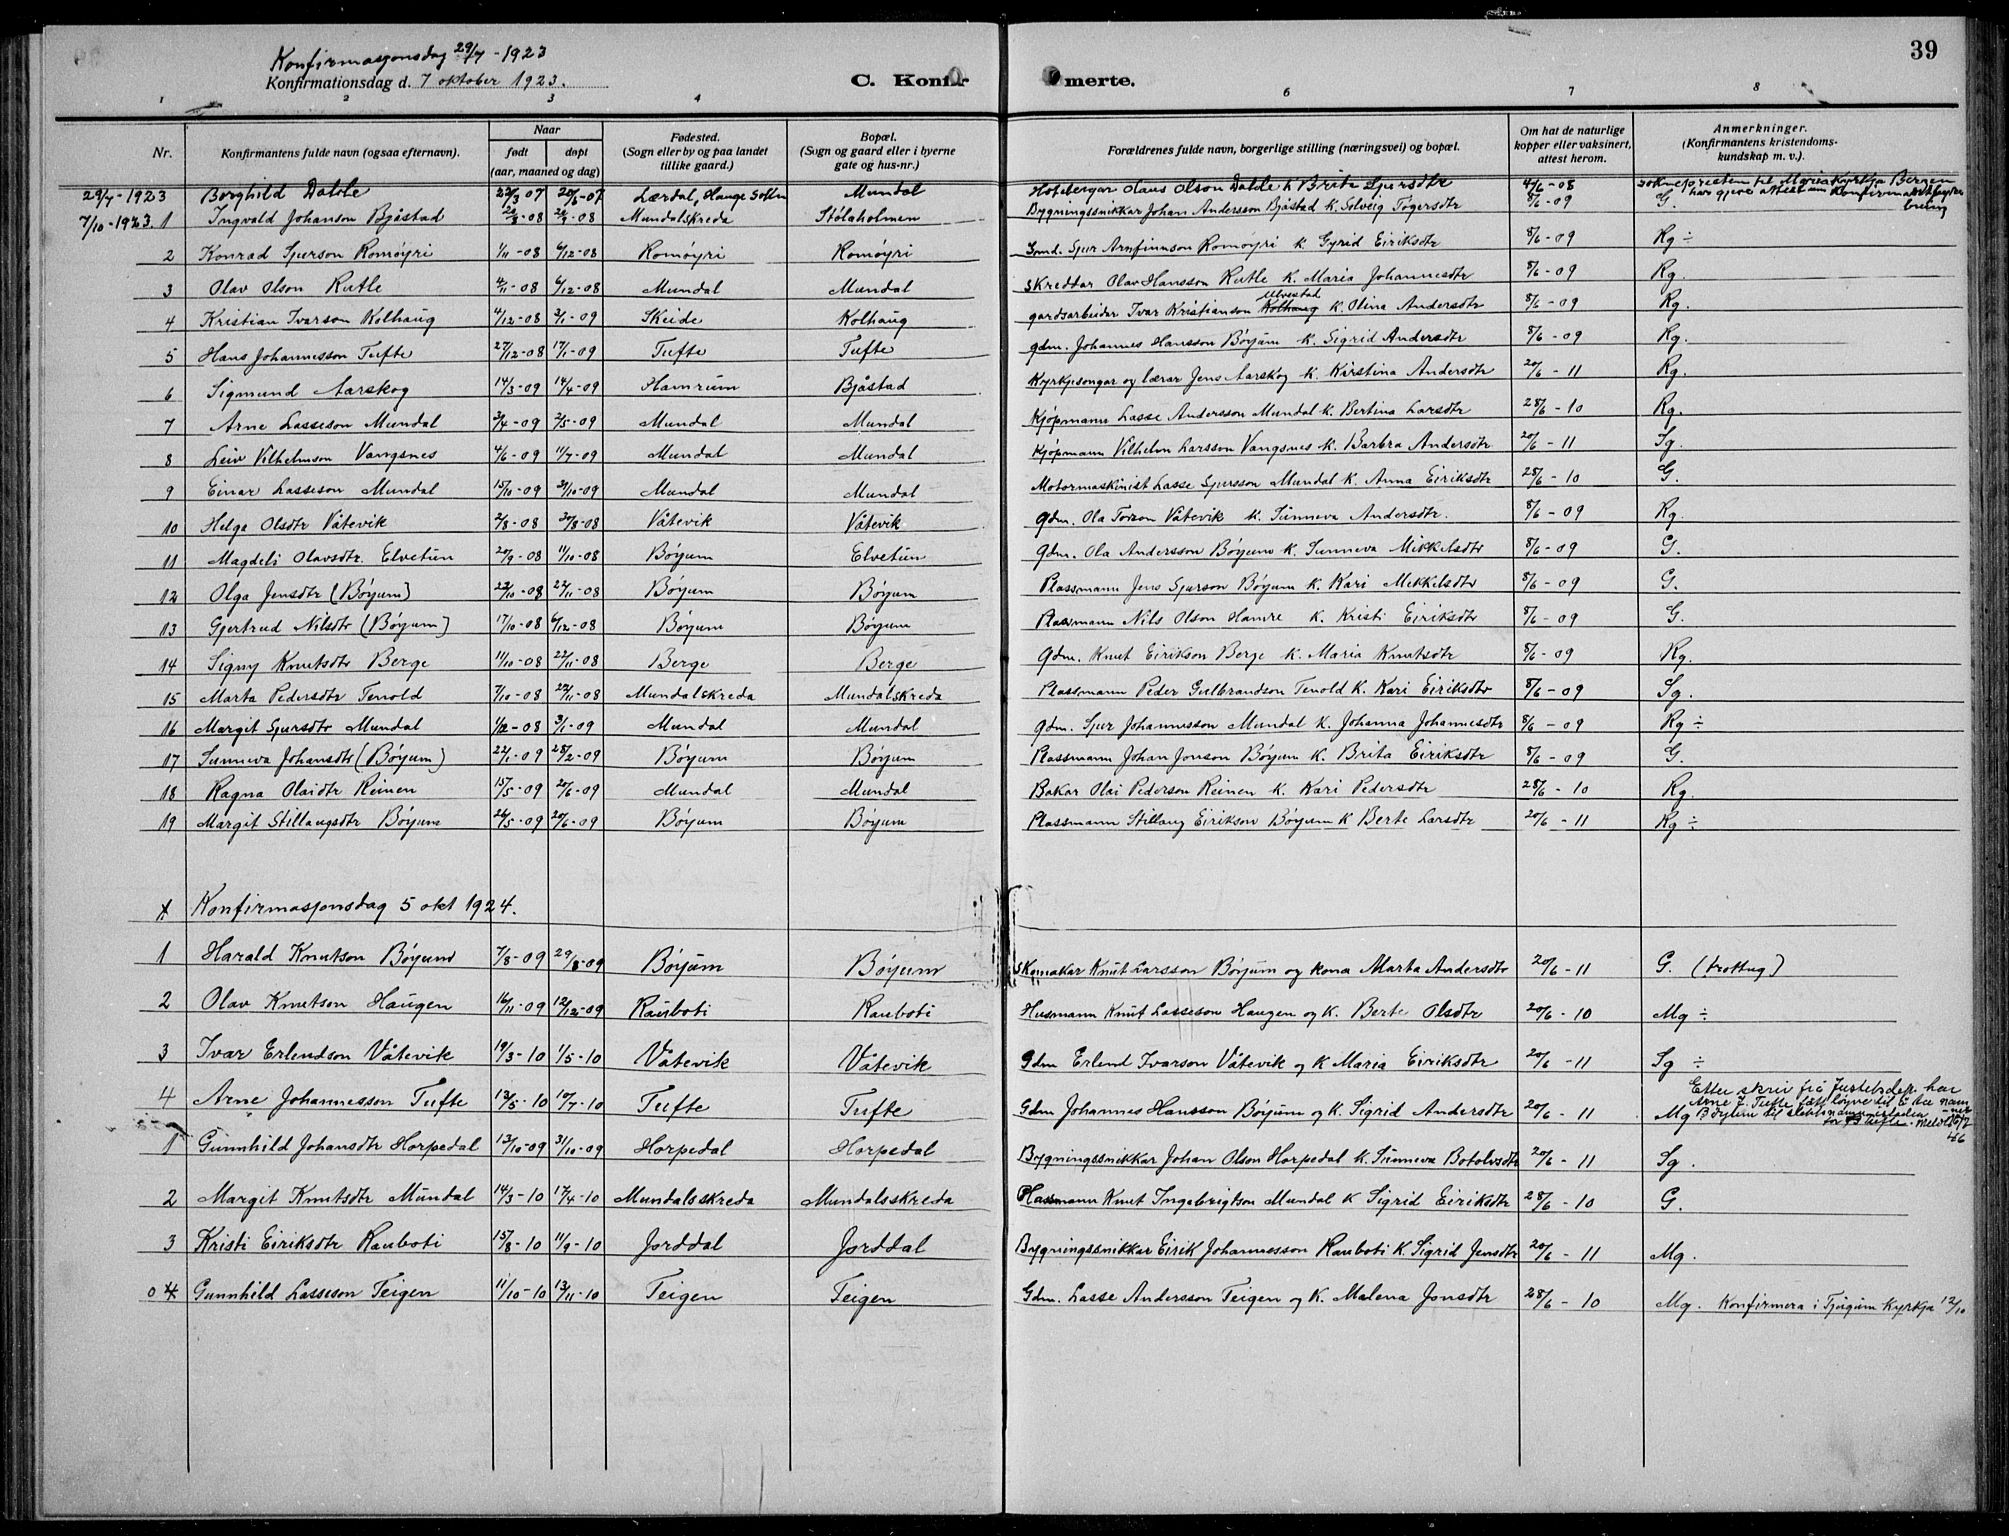 39
Konfirmasjonsdag 29/7 - 1923
Konfirmationsdag d. 7 oktober 1923.
C. Konfir merte.
1 2 3 4 6 7 8
Nr. Konfirmantens fulde navn (ogsaa efternavn). Naar født døpt (aar, maaned og dag) Fødested. (Sogn eller by og paa landet tillike gaard.) Bopæl. (Sogn og gaard eller i byerne gate og hus-nr.) Forældrenes fulde navn, borgerlige stilling (næringsvei) og bopæl. Om hat de naturlige kopper eller vaksinert, attest herom. Anmerkninger. (Konfirmantens kristendoms-kundskap m. v.).
29/7 - 1923 Borghild Dahle 22/3 07 20/6 - 07 Lærdal, Hauge Sokn Mundal Hans Olson Dahle k Brita Sjursdtr 4/6 - 08 Soknepresten til Mariakyrkja Bergen har gjeve attest um
7/10 - 1923. 1 Ingvald Johanson Bjåstad - 08 - 08 Mundalskreda Stölaholmen Bygningssnikkar Johan Andersson Bjåstad k. Solveig 8/6 - 09 G.
2 Konrad Sjurson Romøyri 1/11 - 08 6/12 - 08 Romøyri Romøyri Smd. Sjur Arnfinnson Romøyri k. Gyrid Eiriksdtr 8/6 - 09 Rg ÷
3 Olav Olson Rutle 4/11 - 08 6/12 - 08 Mundal Mundal Skreddar Olav Hansson Rutle k. Maria Johannesdtr 8/6 - 09 Rg.
4 Kristian Ivarson Kolhaug 4/12 - 08 3/1 - 09 Skeide Kolhaug gardsarbeidar Ivar Kristianson Kolhaug Ulvestad k. Olina Andersdtr 8/6 - 09 Rg.
5 Hans Johannesson Tufte 27/12 - 08 17/1 - 09 Tufte Tufte gdm. Johannes Hansson Bøyum k. Sigrid Andersdtr 8/6 - 09 Rg.
6 Sigmund Aarskog 14/3 - 09 14/4 - 09 Hamrum Bjåstad Kyrkjesongar og lærar Jens Aarskog k. Kirstina Andersdtr 20/6 - 11 Rg.
7 Arne Lasseson Mundal 3/4 - 09 2/5 - 09 Mundal Mundal Kjøpmann Lasse Andersson Mundal k. Bertina Larsdtr 28/6 - 10 Rg.
8 Leiv Vilhelmson Vangsnes 4/6 - 09 11/7 - 09 Mundal Mundal Kjøpmann Vilhelm Larsson Vangsnes k. Barbra Andersdtr 20/6 - 11 Sg.
9 Einar Lasseson Mundal 15/10 - 09 31/10 - 09 Mundal Mundal Motormaskinist Lasse Sjursson Mundal k. Anna Eiriksdtr 28/6 - 10 G.
10 Helga Olsdtr Våtevik 2/8 - 08 30/8 - 08 Våtevik Våtevik gdm. Ola Våtevik k. Sunneva Andersdtr. 8/6 - 09 Rg.
11 Magdeli Olavsdtr. Elvetun 20/9 - 08 11/10 - 08 Bøyum Elvetun gdm. Ola Andersson Bøyum k. Sunneva Mikkelsdtr 8/6 - 09 G.
12 Olga Jensdtr (Bøyum) 22/10 - 08 22/11 - 08 Bøyum Bøyum Plassmann Jens Sjurson Bøyum k. Kari Mikkelsdtr 8/6 - 09 G.
13 Gjertrud Nilsdtr (Bøyum) 17/10 - 08 6/12 - 08 Bøyum Bøyum Plassmann Nils Olson Hamre k. Kristi Eiriksdtr 8/6 - 09 G.
14 Signy Knutsdtr Berge 11/10 - 08 22/11 - 08 Berge Berge Gdm. Knut Eirikson Berge k. Maria Knutsdtr 8/6 - 09 Rg.
15 Marta Pedersdtr Tenold 7/10 - 08 22/11 - 08 Mundalskreda Mundalskreda Plassmann Peder Gulbrandson Tenold k. Kari Eiriksdtr 8/6 - 09 Sg.
16 Margit Sjursdtr Mundal 1/12 - 08 3/1 - 09 Mundal Mundal gdm. Sjur Johannesson Mundal k. Johanna Johannesdtr 8/6 - 09 Rg ÷
17 Sunneva Johansdtr (Bøyum) 22/1 - 09 28/2 - 09 Bøyum Bøyum Plassmann Johan Jonson Bøyum k. Brita Eiriksdtr 8/6 - 09 G.
18 Ragna Olaidtr Reinen 15/5 - 09 27/6 - 09 Mundal Mundal Bakar Olai Pederson Reinen k. Kari Pedersdtr 28/6 - 10 Rg.
19 Margit Stillaugsdtr Bøyum 26/5 - 09 20/6 - 09 Bøyum Bøyum Plassmann Stillaug Eirikson Bøyum k Berte Larsdtr 20/6 - 11 Rg ÷
Konfirmasjonsdag 5 okt 1924.
1 Harald Knutson Bøyum 7/8 - 09 29/8 - 09 Bøyum Bøyum Skomakar Knut Larsson Bøyum og kona Marta Andersdtr 20/6 - 11 G. (trottug)
2 Olav Knutson Haugen 16/11 - 09 12/12 - 09 Rauboti Rauboti Husmann Knut Lasseson Haugen og k. Berte Olsdtr 20/6 - 10 Mg ÷
3 Ivar Erlendson Våtevik 19/3 - 10 1/5 - 10 Våtevik Våtevik Gdm Erlend Ivarson Våtevik og k Maria Eiriksdtr 20/6 - 11 Sg ÷
4 Arne Johannesson Tufte 13/5 - 10 10/7 - 10 Tufte Tufte Gdm Johannes Hansson Bøyum og k. Sigrid Andersdtr 20/6 - 11 Mg Etter skriv frå Justisdep. har Arne J. Tufte fått løyve til å ta namnet Bøyum til slektsnamn istaden for Tufte.
1 Gunnhild Johansdtr Horpedal 13/10 - 09 31/10 - 09 Horpedal Horpedal Bygningssnikkar Johan Olson Horpedal k. Sunneva Botolvsdtr 20/6 - 11 Sg.
2 Margit Knutsdtr Mundal 14/3 - 10 17/4 - 10 Mundalsskreda Mundalsskreda Plassmann Knut Ingebrigtson Mundal k Sigrid Eiriksdtr 28/6 - 10 G.
3 Kristi Eiriksdtr Rauboti 15/8 - 10 11/9 - 10 Jorddal Jorddal Bygningssnikkar Eirik Johannesson Rauboti k. Sigrid Jensdtr 20/6 - 11 Mg.
0 4 Gunnhild Lasseson Teigen 11/10 - 10 13/11 - 10 Teigen Teigen Gdm. Lasse Andersson Teigen og k. Malena Jonsdtr 28/6 - 10 Mg. Konfirmera i Tjugum Kyrkja 12/10